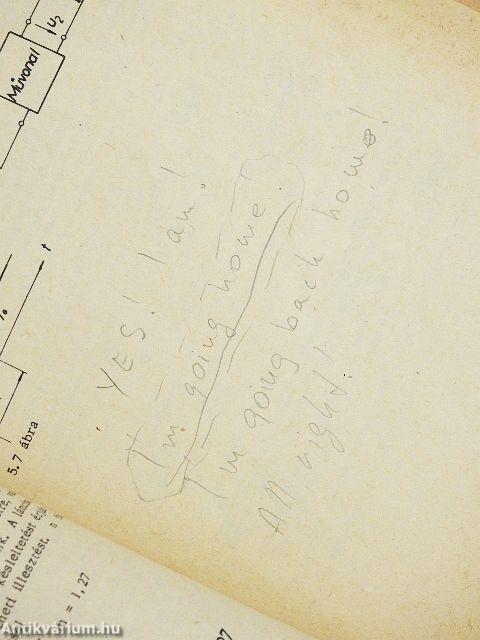 Művonal
u2
t
5.7 ábra
YES! I am!
I'm going home.
I'm going back home!
All right!
késleltetést
illesztést.
= 1,27
27
Antikvárium.hu